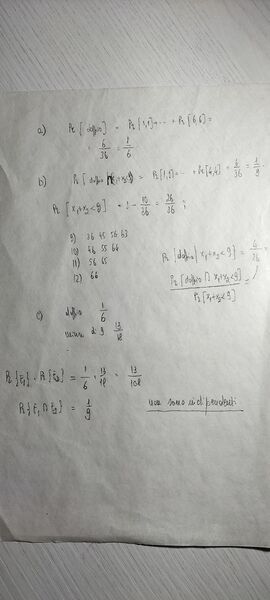 a) Pr [doppio] = Pr [1,1] + ... + Pr [6,6] =
= 6/36 = 1/6
b) Pr [doppio ∩ x1+x2<9] = Pr [1,1] + ... + Pr [4,4] = 4/36 = 1/9
Pr [x1+x2<9] = 1 - 10/36 = 26/36 ;
9) 36 45 54 63
10) 46 55 64
11) 56 65
12) 66
Pr [doppio | x1+x2<9] =
Pr [doppio ∩ x1+x2<9] / Pr [x1+x2<9] =
c) doppio 1/6
di 9 13/18
Pr {E1} · Pr {E2} = 1/6 · 13/18 = 13/108
Pr {E1 ∩ E2} = 1/9
non sono indipendenti